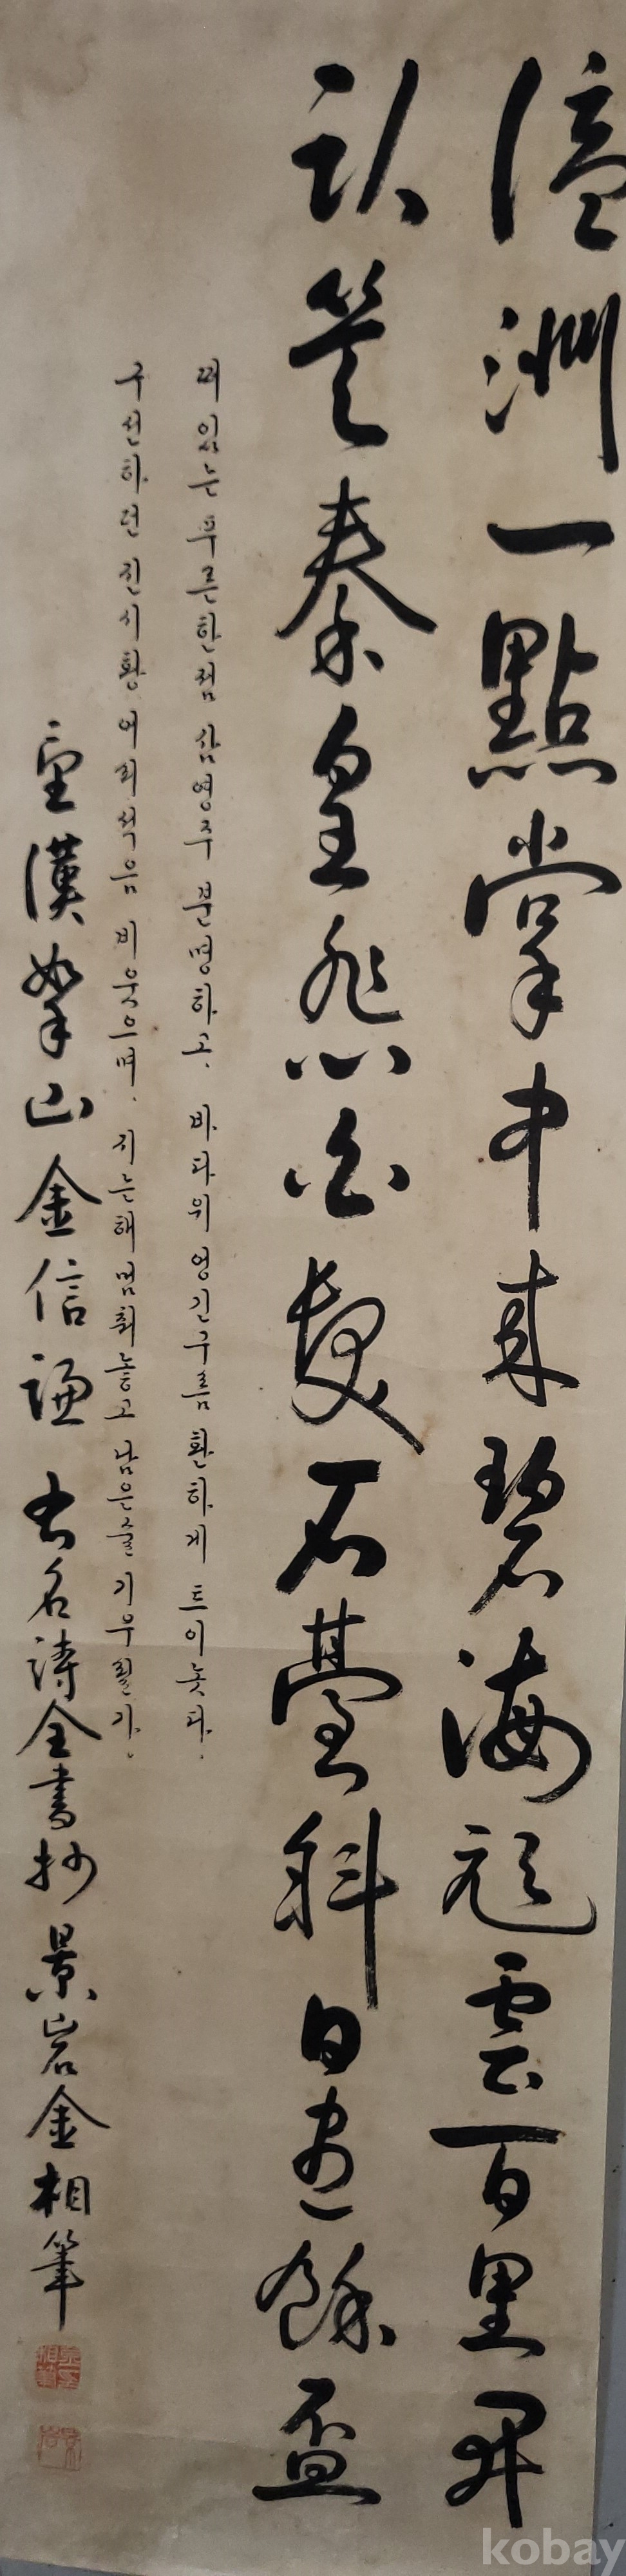 瀛洲一點掌中來碧海頑雲百里開
臥笑秦皇悲白髮石臺斜日盡餘盃
떠 있는 푸른한점 삼영주 분명하고, 바다위 엉긴구름 환하게 트이놋다.
구선하던 진시황 어리석음 비웃으며, 지는해 멈춰놓고 남은술 기우릴가.
望漢拏山 金信謙 古名詩全書抄 景岩金相筆
kobay